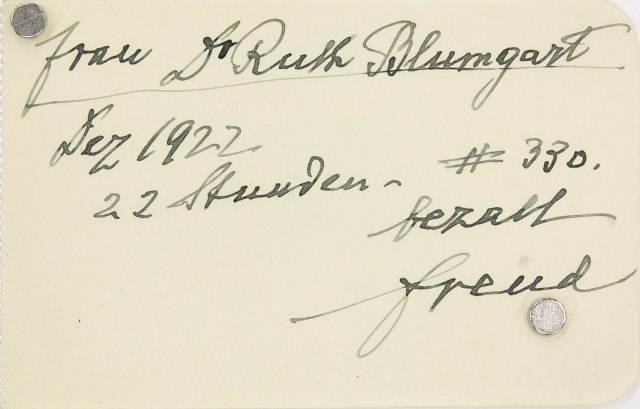 Frau Dr Ruth Blumgart
Dez 1922
22 Stunden - # 330.
bezalt
Freud